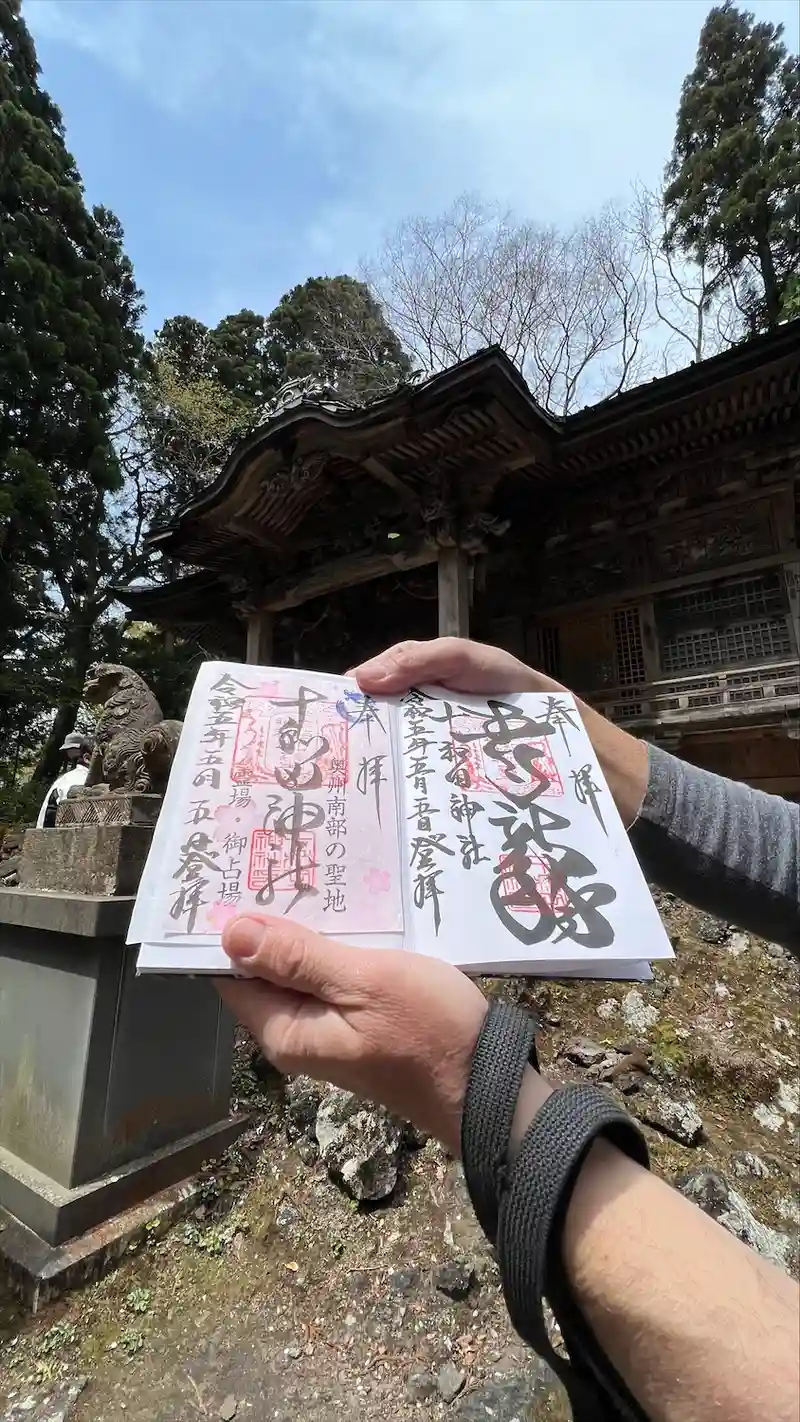 奉拝
十和田神社
令和五年五月五日登拝
奉拝
奥州南部の聖地
十和田神社
霊場・御占場
令和五年五月五日登拝